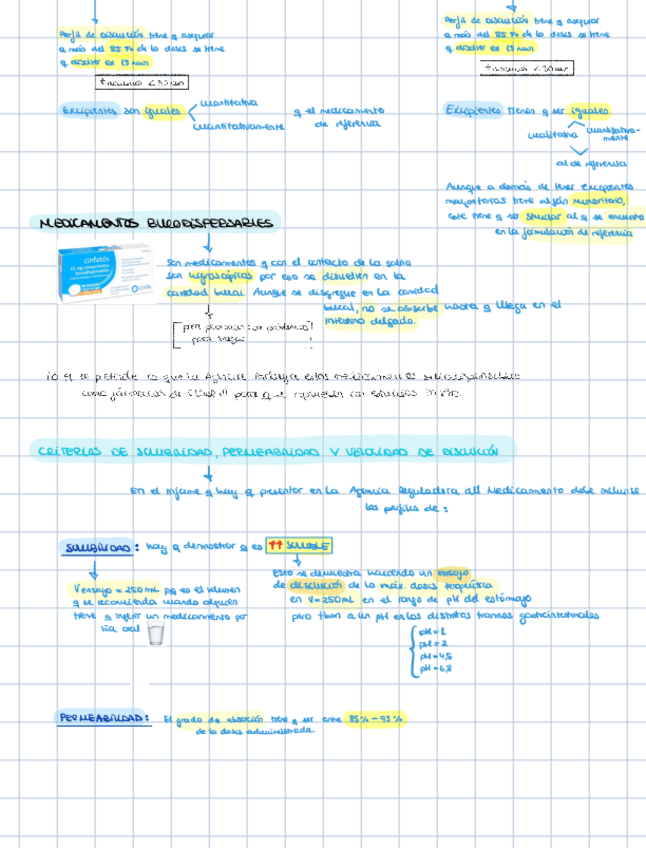 Perfil de disolución tiene q asegurar
a más del 85% de la dosis se tiene
q disolver en 15 min
Excipientes son iguales
cualitativa
cuantitativamente
q el medicamento
de referencia
Perfil de disolución tiene q asegurar
a más del 85% de la dosis se tiene
q disolver en 15 min
Excipientes tienen q ser iguales
cualitativa
cuantitativa-
mente
al de referencia
Aunque a demás de tener excipientes
mayoritarios tiene algún minoritario,
este tiene q ser similar al q se encuentra
en la formulación de referencia
MEDICAMENTOS BUCODISPERSABLES
cinfatós
cinfa
son medicamentos q con el contacto de la saliva
son higroscópicos por eso se disuelven en la
cavidad bucal. Aunque se disgregue en la cavidad
bucal, no se absorbe hasta q llega en el
intestino delgado.
para personas con problemas
para tragar
lo q se pretende es que la Agencia estos medicamentos bucodispersables
como fármacos de Clase III para q se aprueben con estudios in vitro.
CRITERIOS DE SOLUBILIDAD, PERMEABILIDAD Y VELOCIDAD DE DISOLUCIÓN
En el informe q hay q presentar en la Agencia Reguladora del Medicamento debe incluirse
los perfiles de:
SOLUBILIDAD: hay q demostrar q es ↑↑ SOLUBLE
V ensayo = 250 mL pq es el volumen
q se recomienda cuando alguien
tiene q ingerir un medicamento por
vía oral
Esto se demuestra haciendo un ensayo
de disolución de la máx. dosis terapéutica
en V=250mL en el rango de pH del estómago
pero tbm a un pH en los distintos tramos gastrointestinales
pH=1
pH=2
pH=4,5
pH=6,8
PERMEABILIDAD: El grado de absorción tiene q ser entre 85%-92%
de la dosis administrada.